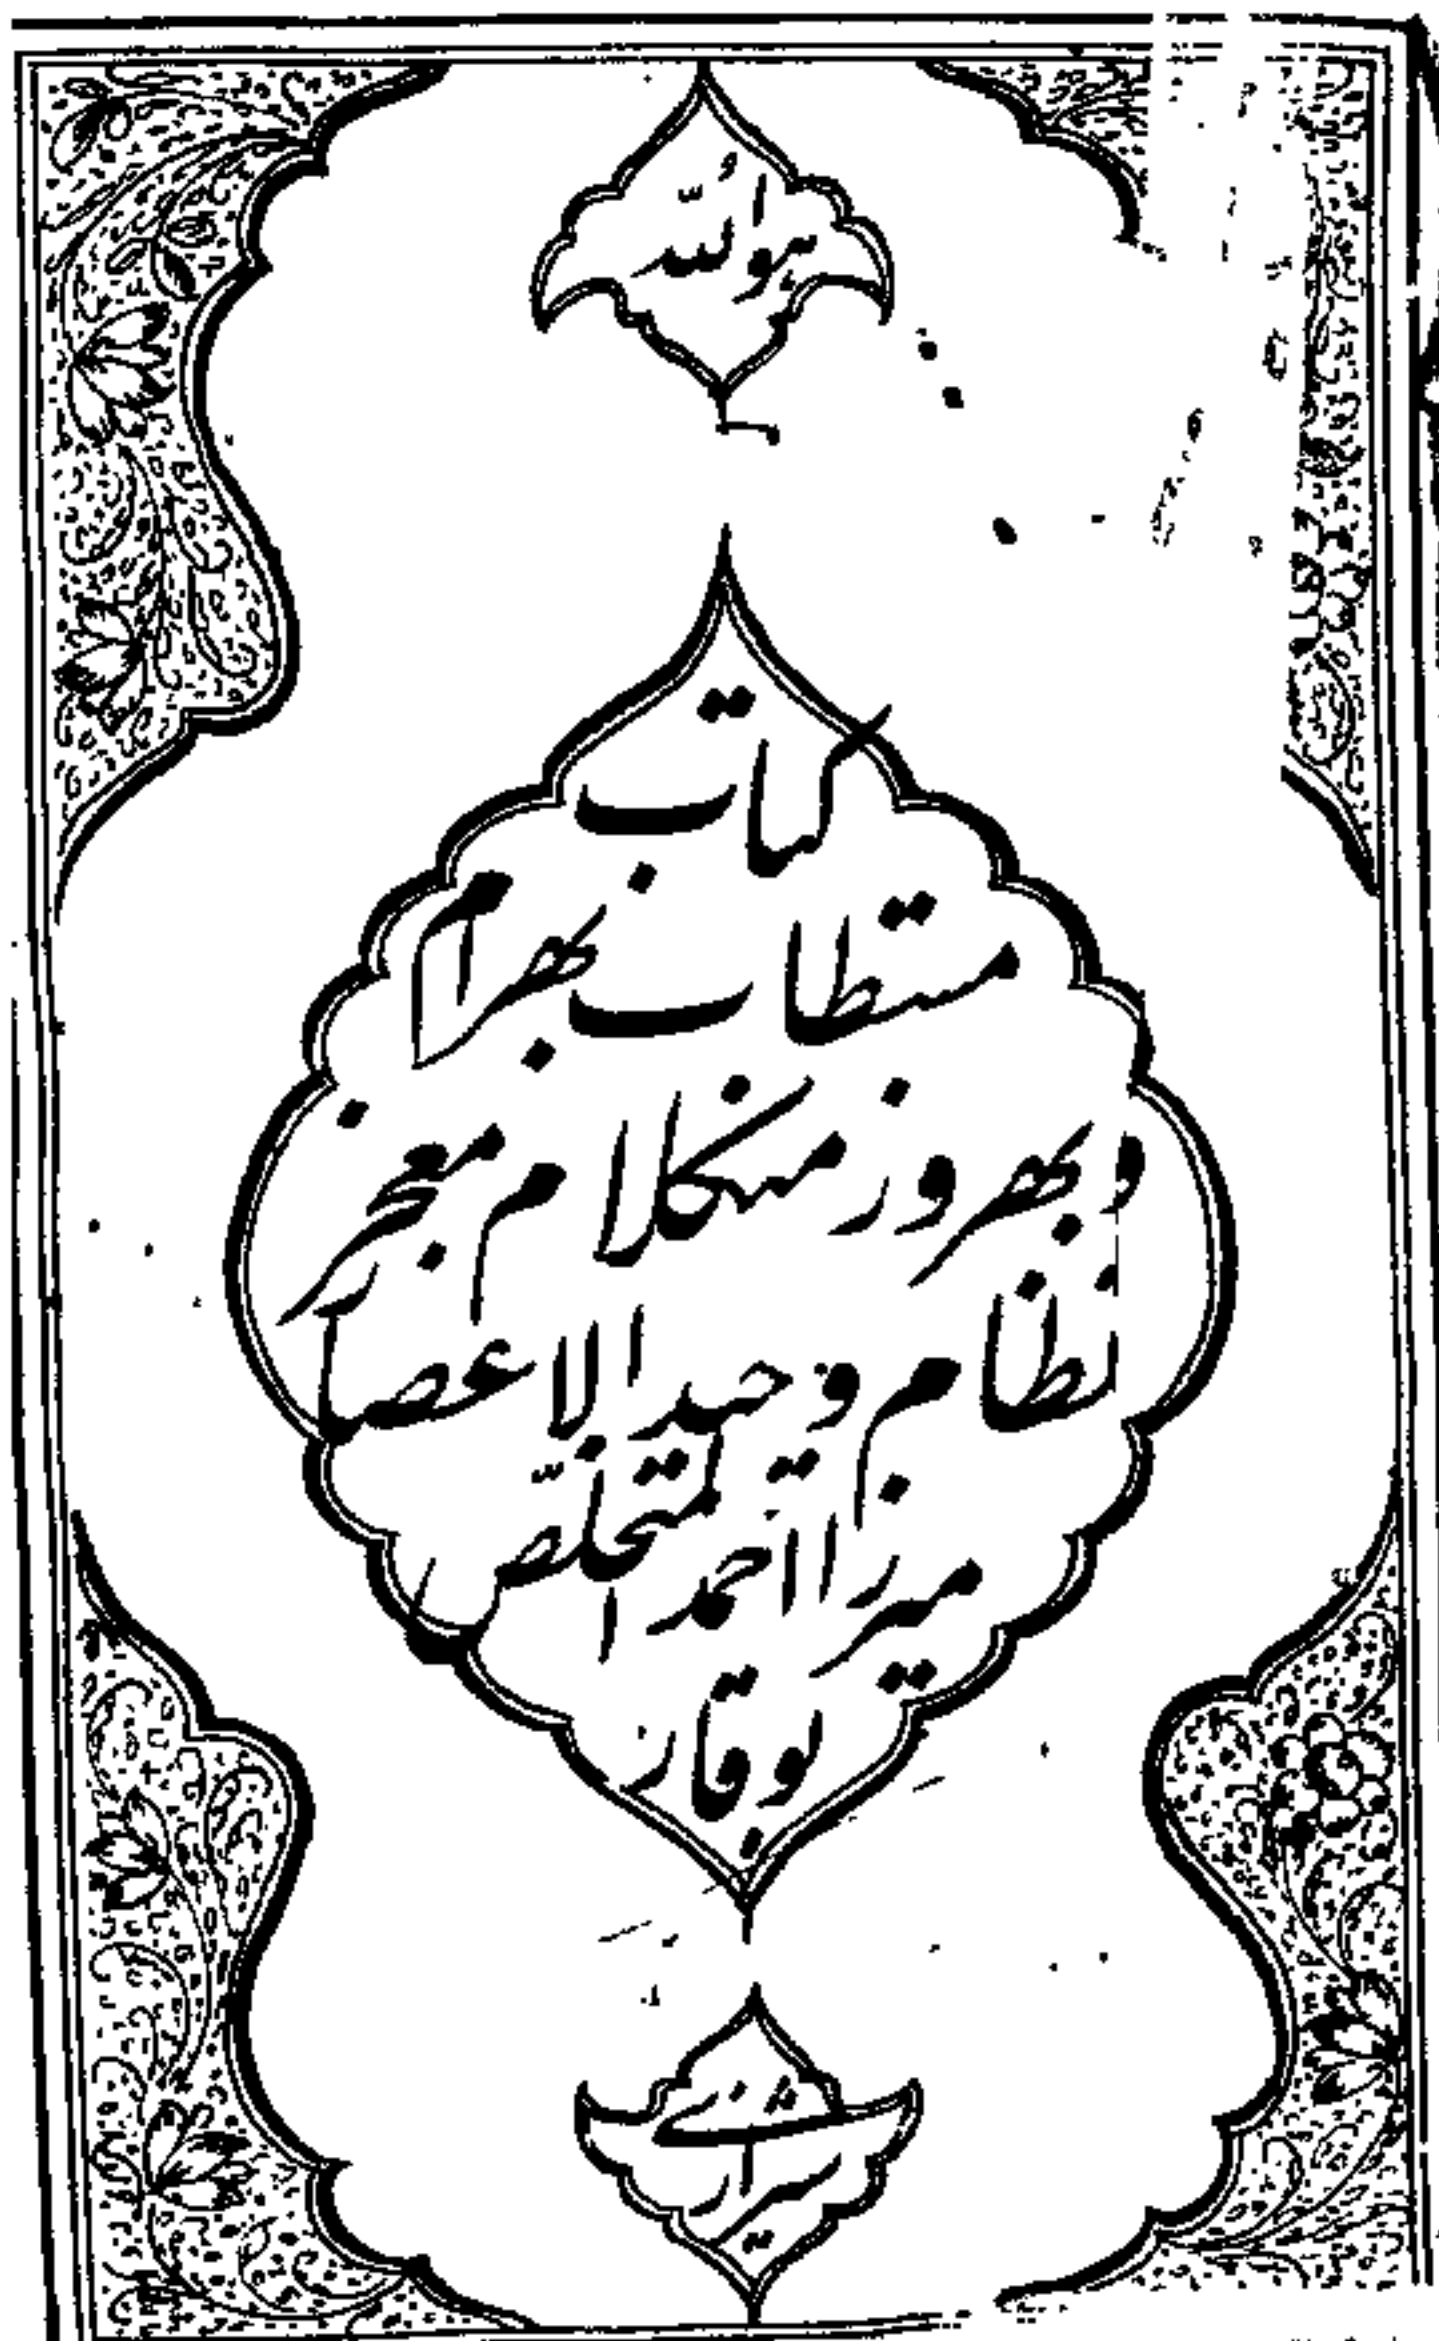 هو اللّه
کتاب
مستطاب بهرام
و بهروز من کلام معجز
نظام وحید الاعصار
میرزا احمد المتخلّص
بوقار
شیرازی